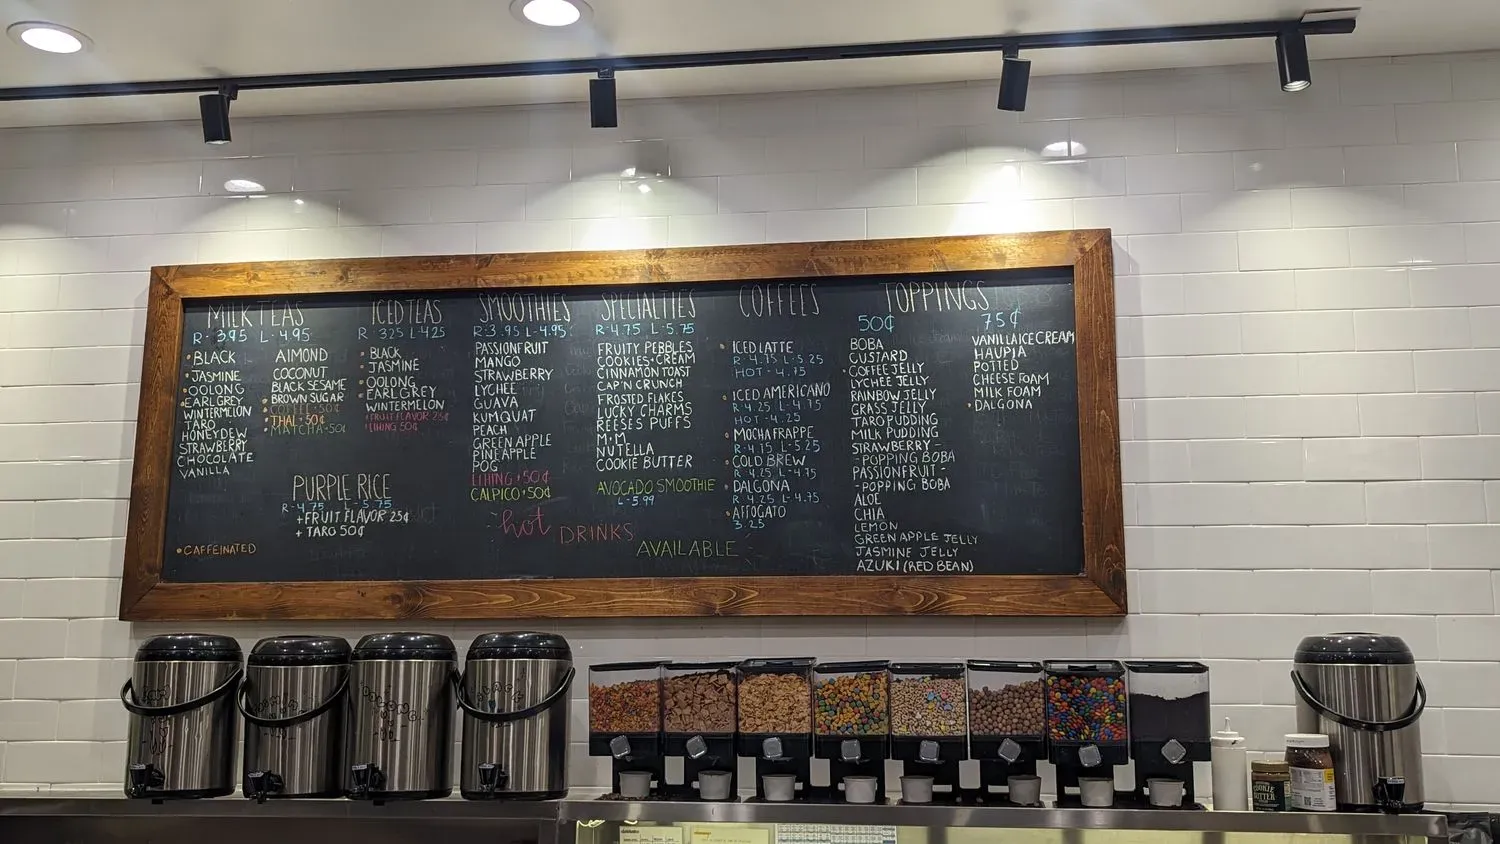 MILK TEAS
R - 3.95 L - 4.95
• BLACK
• JASMINE
• OOLONG
• EARL GREY
WINTERMELON
TARO
HONEYDEW
STRAWBERRY
CHOCOLATE
VANILLA
AlMOND
COCONUT
BLACK SESAME
BROWN SUGAR
• COFFEE +50¢
• THAI +50¢
• MATCHA +50¢
PURPLE RICE
R - 4.75 L - 5.75
+ FRUIT FLAVOR 25¢
+ TARO 50¢
• CAFFEINATED
ICED TEAS
R - 3.25 L - 4.25
• BLACK
• JASMINE
• OOLONG
• EARL GREY
WINTERMELON
+ FRUIT FLAVOR 25¢
+ LIHING 50¢
SMOOTHIES
R - 3.95 L - 4.95
PASSIONFRUIT
MANGO
STRAWBERRY
LYCHEE
GUAVA
KUMQUAT
PEACH
GREEN APPLE
PINEAPPLE
POG
LIHING +50¢
CALPICO +50¢
SPECIALTIES
R - 4.75 L - 5.75
FRUITY PEBBLES
COOKIES + CREAM
CINNAMON TOAST
CAP'N CRUNCH
FROSTED FLAKES
LUCKY CHARMS
REESES PUFFS
M+M
NUTELLA
COOKIE BUTTER
AVOCADO SMOOTHIE
L - 5.99
hot DRINKS
AVAILABLE
COFFEES
• ICED LATTE
R - 4.75 L - 5.25
HOT - 4.75
• ICED AMERICANO
R - 4.25 L - 4.75
HOT - 4.25
• MOCHA FRAPPE
R - 4.75 L - 5.25
• COLD BREW
R - 4.25 L - 4.75
• DALGONA
R - 4.25 L - 4.75
• AFFOGATO
3.25
TOPPINGS
50¢
BOBA
CUSTARD
• COFFEE JELLY
LYCHEE JELLY
RAINBOW JELLY
GRASS JELLY
TARO PUDDING
MILK PUDDING
STRAWBERRY -
- POPPING BOBA
PASSIONFRUIT -
- POPPING BOBA
ALOE
CHIA
LEMON
GREEN APPLE JELLY
JASMINE JELLY
AZUKI (RED BEAN)
75¢
VANILLA ICE CREAM
HAUPIA
POTTED
CHEESE FOAM
MILK FOAM
• DALGONA
OOLONG
BLACK
COOKIE
BUTTER